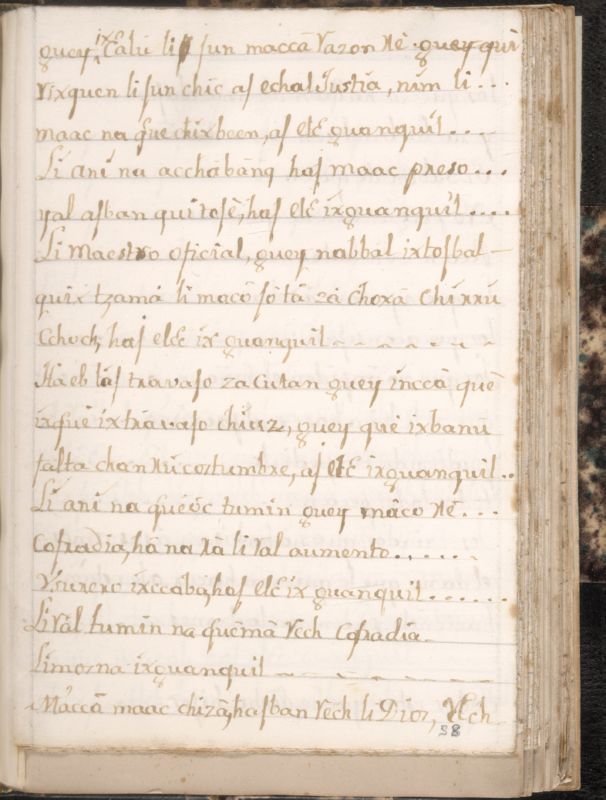 guey, ix Ɛalú li sun maccâ Vazon Nè. guey qui
rixquen li sun chic as echal Justia, nim li...
maac na que chixbeen, as elɛ guanquil....
Li aní na acchábanq has maac preso...
yal asban quitosè, has elɛ ixguanquil....
Li Maestro oficial, guey nabbal ixtosbal -
quix tzamá li macô sotá zá Choxâ Chirxu
Cchoch, has elɛ ix guanquil
Háeb las travaso za Cutan guey inccâ què
ixquè ixtravaso chiuz, guey què ixbanu
falta chan Nú costumbre, as elɛ ixguanquil..
Li aní na què öc tumin guey maco Nè...
Cofradia, há na Nà li Val aumento......
Vsurero ixccaba, has elɛ ix guanquil......
Li Vál tumin na quèmâ Vech Cofradia.
Limozna ixguanquil
Maccâ maac chizâ, hasban Vech li Dioz, Nch
38